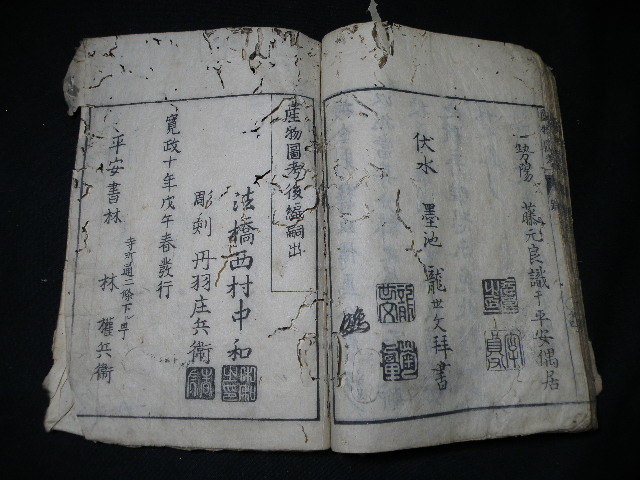 勢陽 藤元良識于平安寓居
伏水 墨池 龍世文拝書
産物圖考後編嗣出
法橋西村中和
彫刻 丹羽庄兵衛
寛政十年戊午春發行
寺町通二條下ル町
平安書林 林 權兵衛